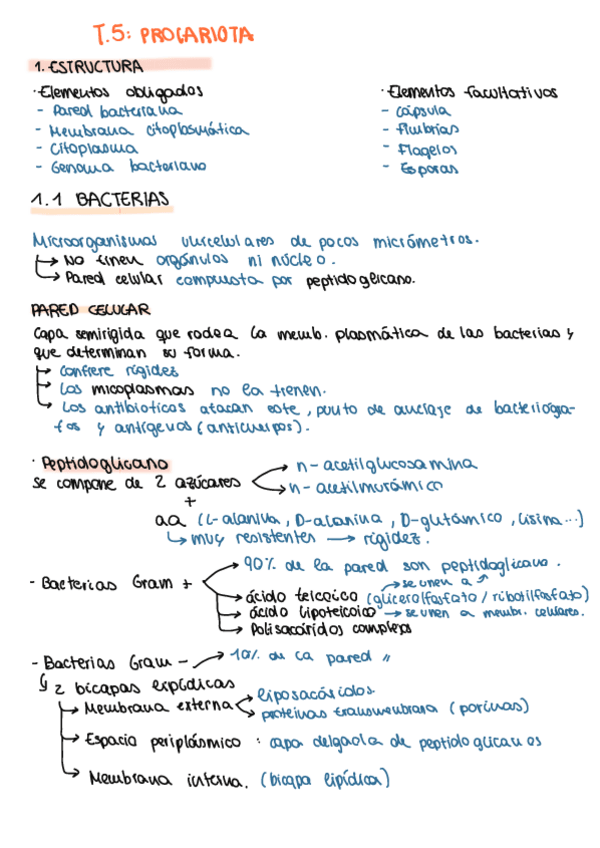 T.5: PROCARIOTA
1. ESTRUCTURA
· Elementos obligados
- Pared bacteriana
- Membrana citoplasmática
- Citoplasma
- Genoma bacteriano
· Elementos facultativos
- cápsula
- Fimbrias
- Flagelos
- Esporas
1.1 BACTERIAS
Microorganismos unicelulares de pocos micrómetros.
→ No tienen orgánulos ni núcleo.
→ Pared celular compuesta por peptidoglicano.
PARED CELULAR
Capa semirigida que rodea la memb. plasmática de las bacterias y
que determinan su forma.
→ Confiere rigidez
→ Los micoplasmas no la tienen.
→ Los antibioticos atacan este, punto de anclaje de bacteriófa-
fos y antígenos (anticuerpos).
· Peptidoglicano
se compone de 2 azúcares → n-acetilglucosamina
→ n-acetilmurámico
+
aa (L-alanina, D-alanina, D-glutámico, lisina...)
↳ muy resistentes → rigidez.
- Bacterias Gram + → 90% de la pared son peptidoglicano.
→ se unen a ↗
→ ácido teicoico (glicerolfosfato / ribotilfosfato)
→ ácido lipoteicoico → se unen a membr. celulares.
→ Polisacáridos complejos
- Bacterias Gram - → 10% de la pared "
↳ 2 bicapas lipídicas
→ Membrana externa → liposacáridos.
→ proteínas transmembrana (porinas)
→ Espacio periplásmico : capa delgada de peptidoglicanos
→ Membrana interna. (bicapa lipídica)